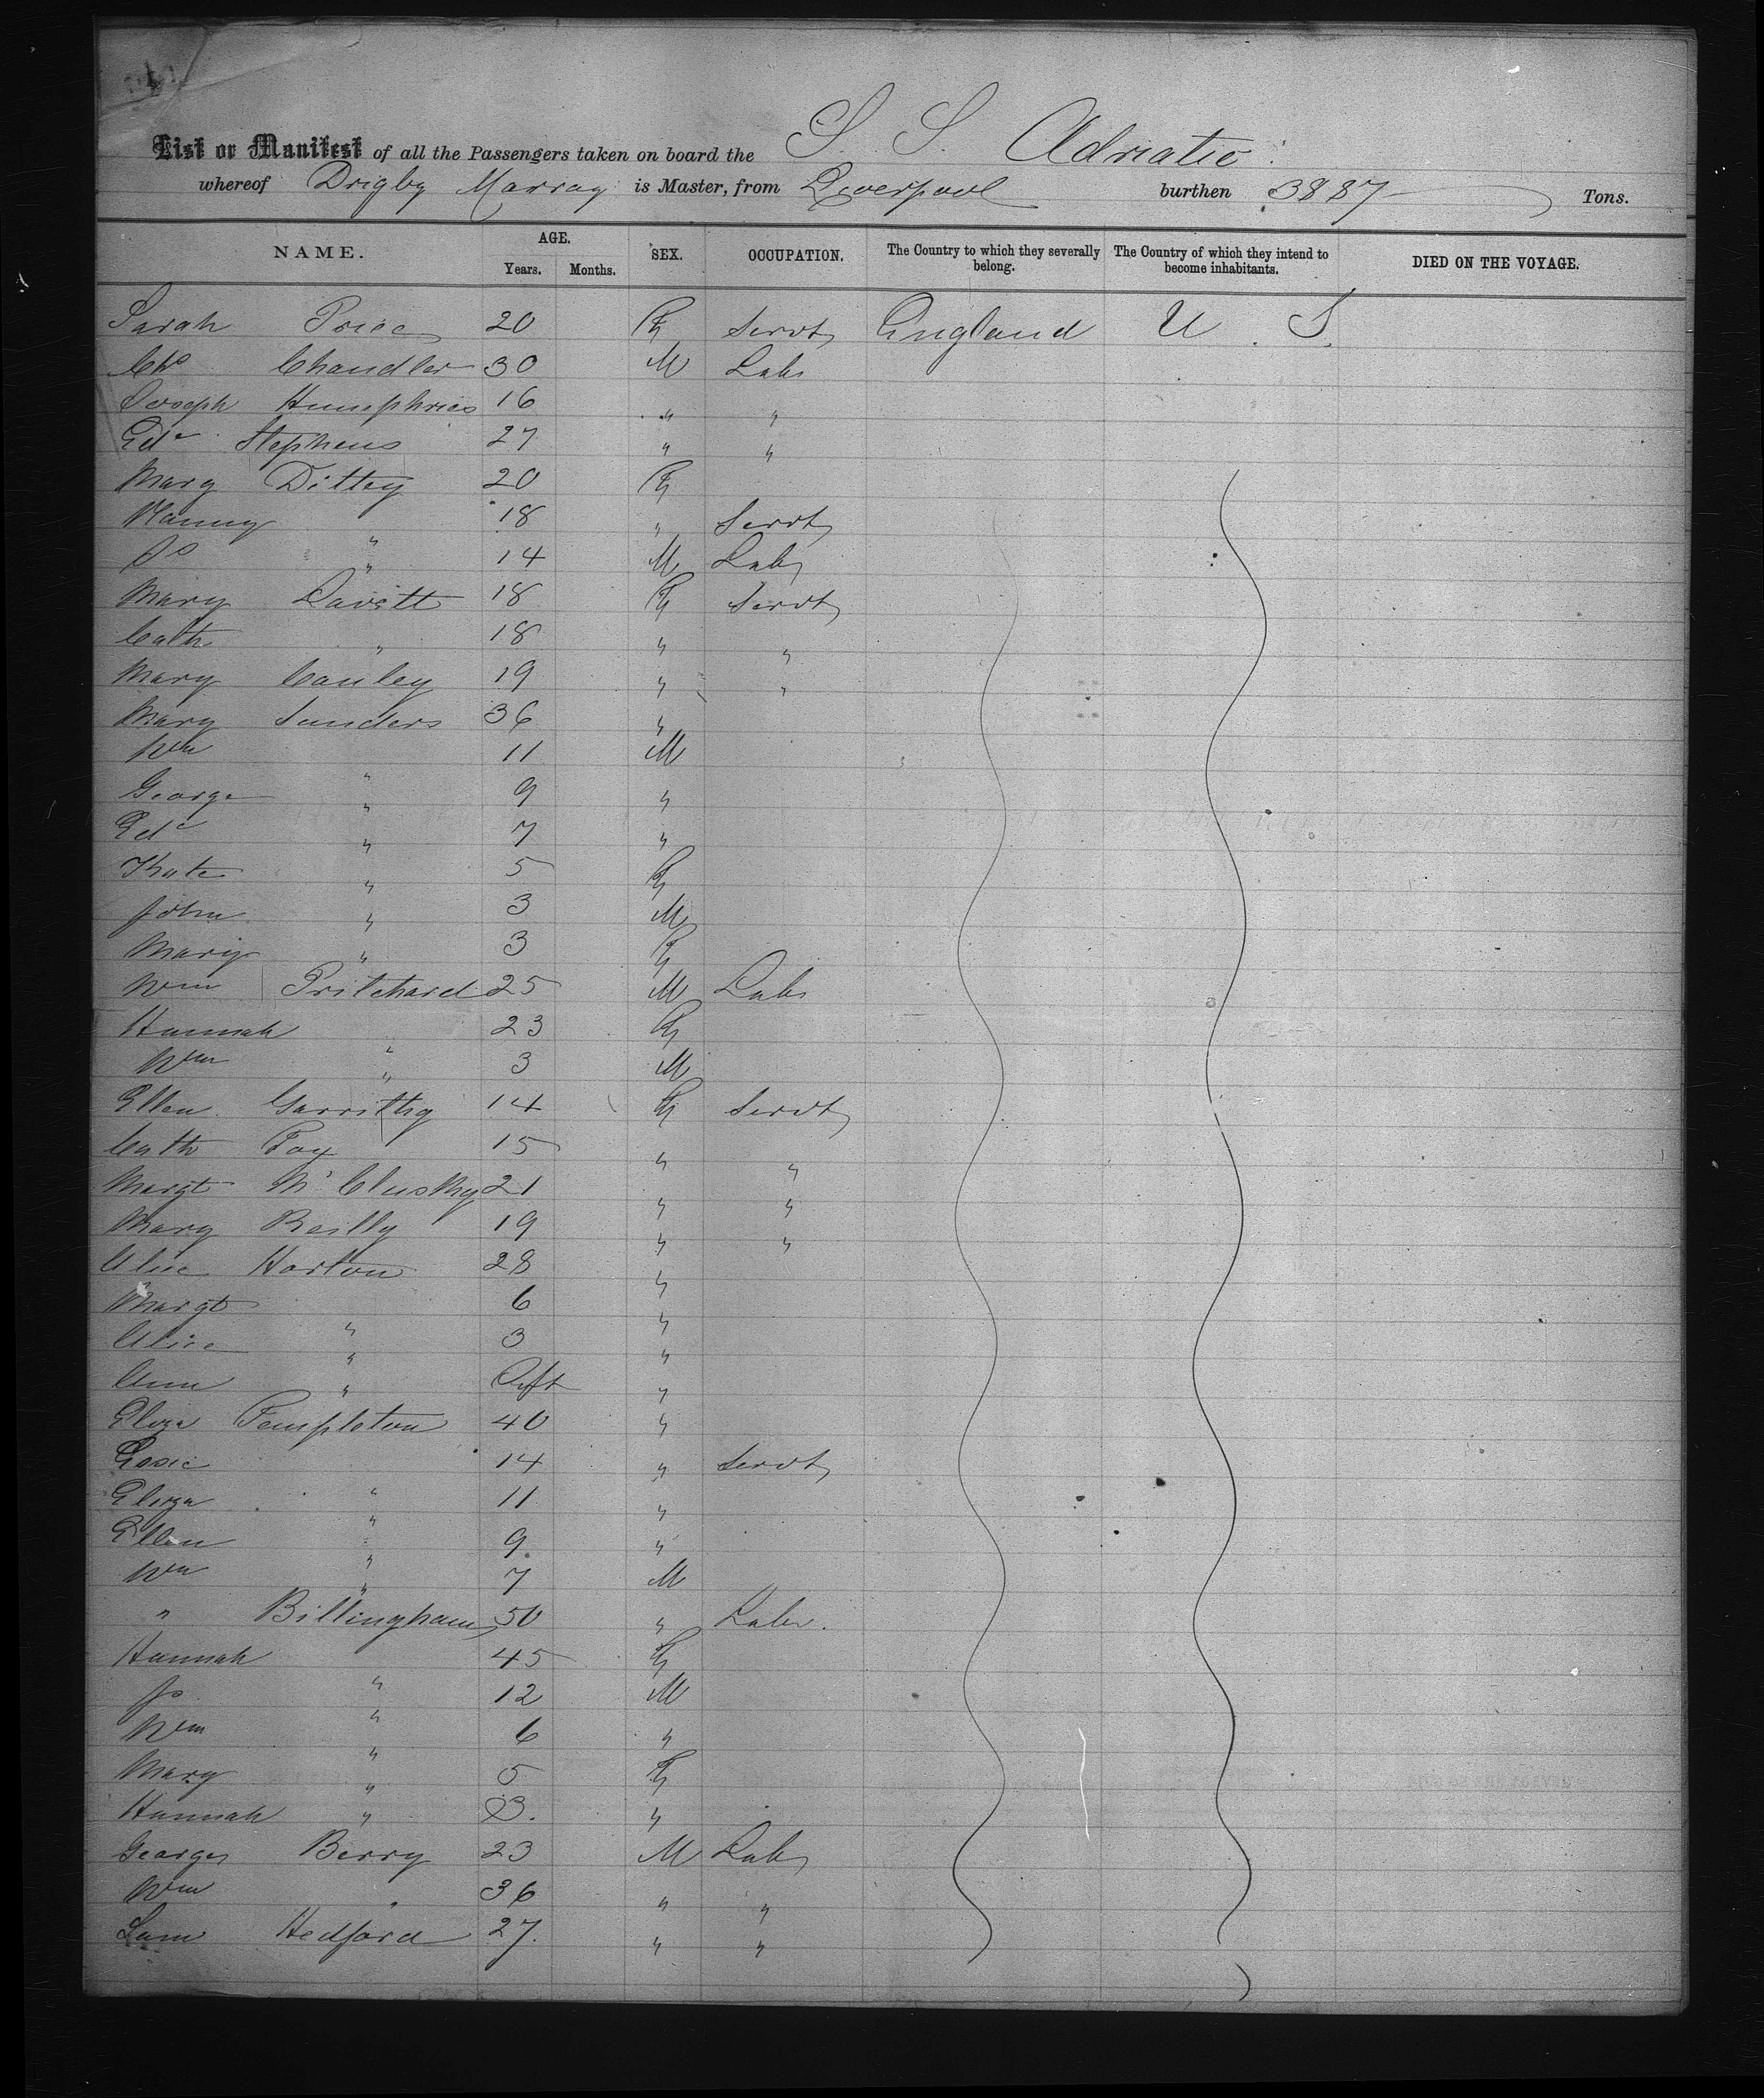 List or Manifest of all the Passengers taken on board the S. S. Adriatic
whereof Drigby Murray is Master, from Liverpool burthen 3887 Tons.
NAME. AGE. Years. Months. SEX. OCCUPATION. The Country to which they severally belong. The Country of which they intend to become inhabitants. DIED ON THE VOYAGE.
Sarah Price 20 F Servt England U. S.
Chs Chandler 30 M Labr
Joseph Humphries 16 " "
Edw Stephens 27 " "
Mary Dittey 20 F
Nanny " 18 " Servt
Js " 14 M Labr
Mary Davitt 18 F Servt
Cath " 18 " "
Mary Cauley 19 " "
Mary Sanders 36 "
Wm " 11 M
George " 9 "
Edw " 7 "
Kate " 5 F
John " 3 M
Mary " 3 F
Wm Pritchard 25 M Labr
Hannah " 23 F
Wm " 3 M
Ellen Garritty 14 F Servt
Cath Foy 15 " "
Margt McClusky 21 " "
Mary Reilly 19 " "
Alice Horton 28 "
Margt " 6 "
Alice " 3 "
Ann " Inft "
Eliza Templeton 40 "
Essie " 14 " Servt
Eliza " 11 "
Ellen " 9 "
Wm " 7 M
" Billingham 50 " Labr.
Hannah " 45 F
Js " 12 M
Wm " 6 "
Mary " 5 F
Hannah " 3. "
George Berry 23 M Labr
Wm " 36 " "
Sam Hedford 27. " "